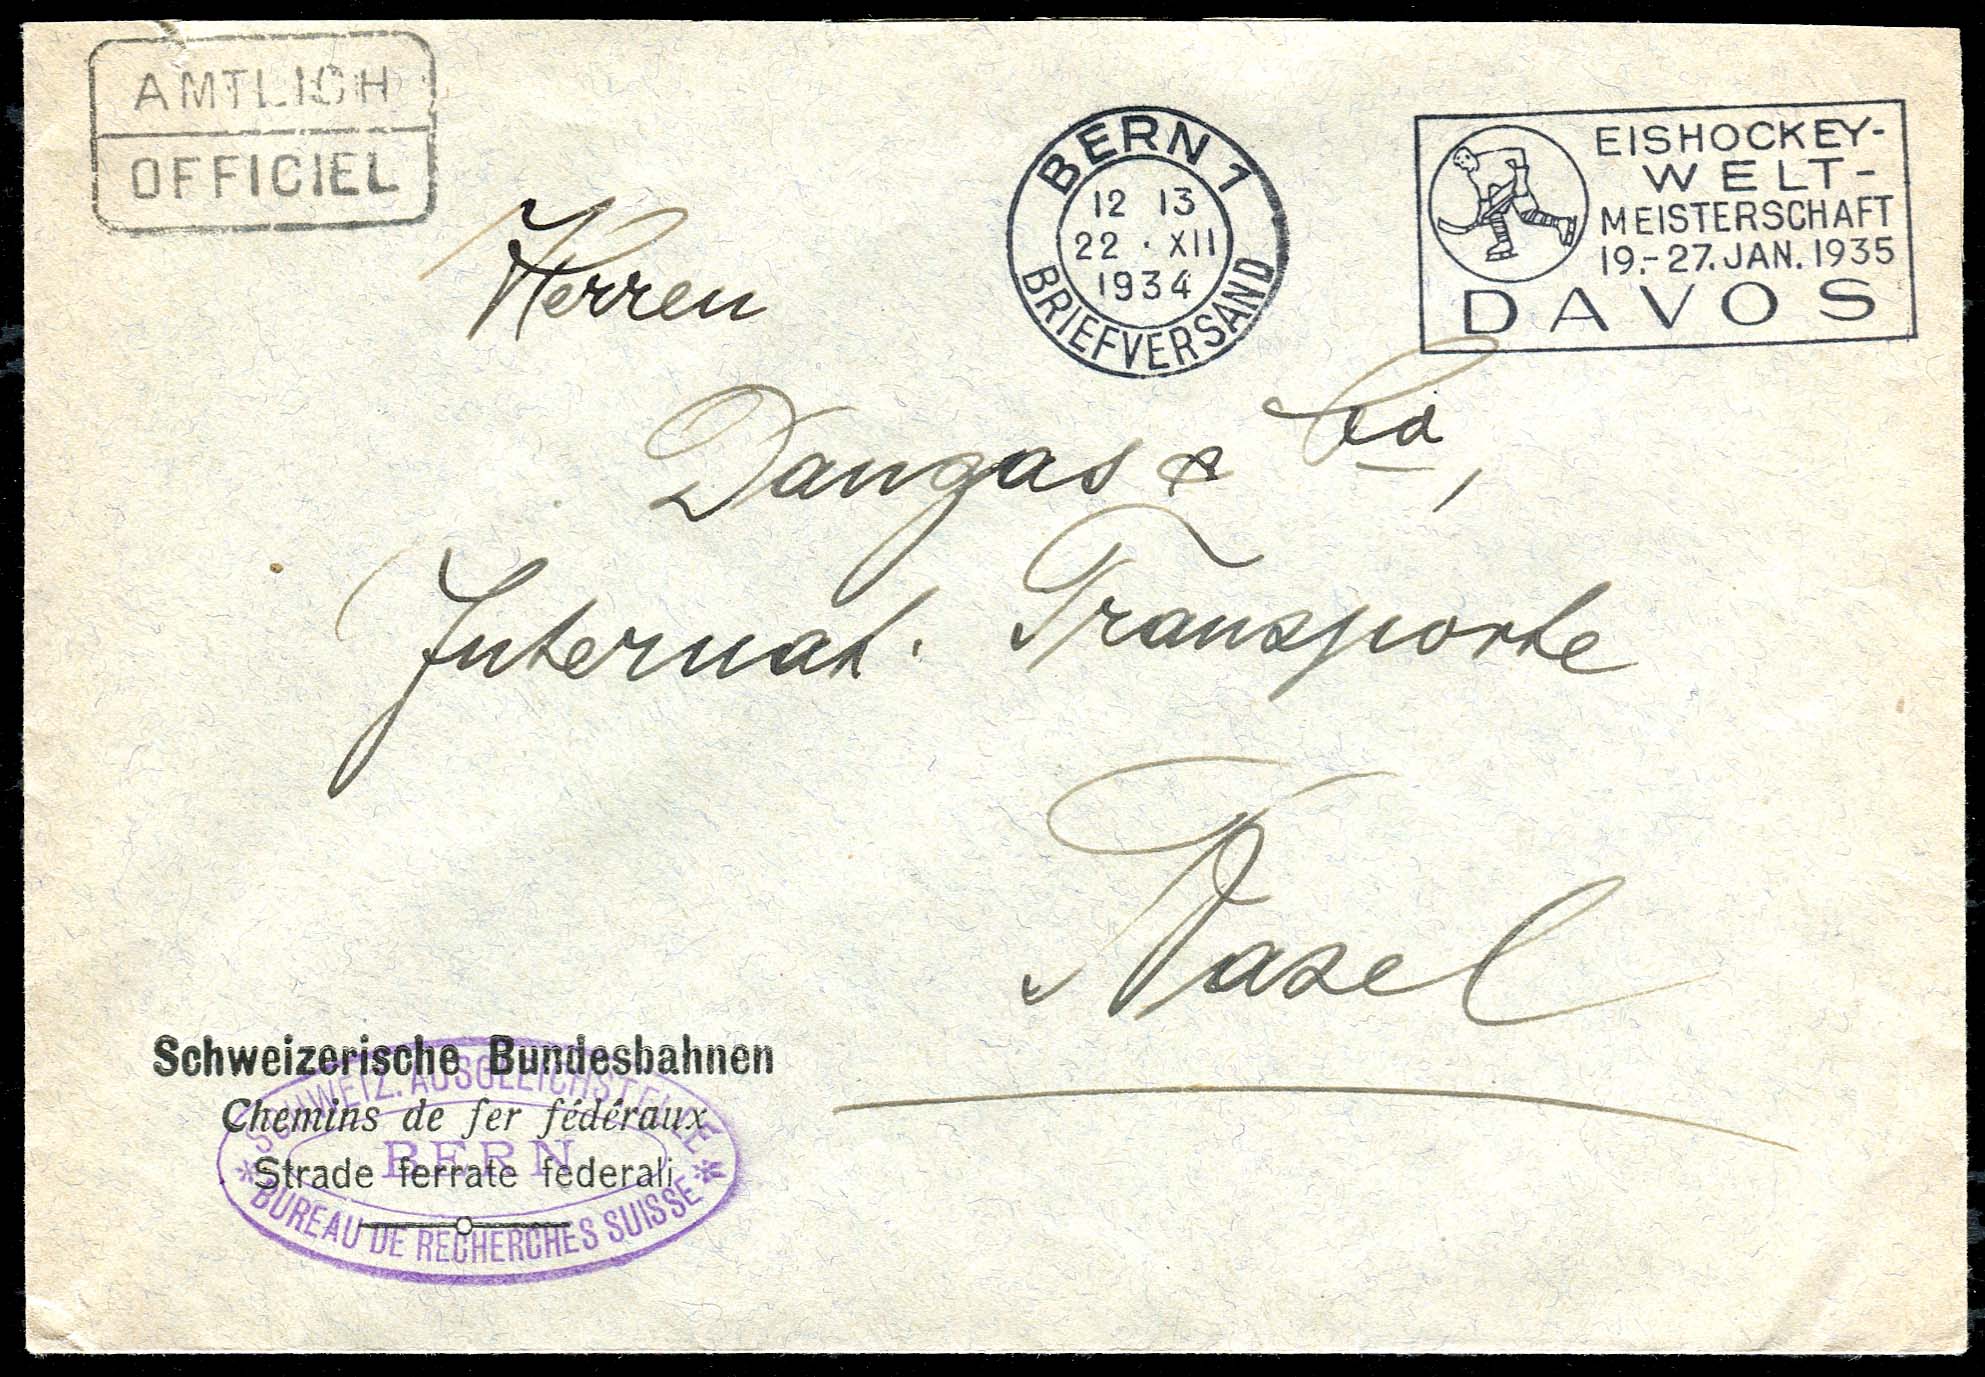 AMTLICH
OFFICIEL
BERN 1
12 13
22 · XII
1934
BRIEFVERSAND
EISHOCKEY-
WELT-
MEISTERSCHAFT
19.-27. JAN. 1935
DAVOS
Herren
Dangas & Co,
Internat. Transporte
Basel
Schweizerische Bundesbahnen
Chemins de fer fédéraux
Strade ferrate federali
SCHWEIZ. AUSGLEICHSTELLE
BERN
* BUREAU DE RECHERCHES SUISSE *